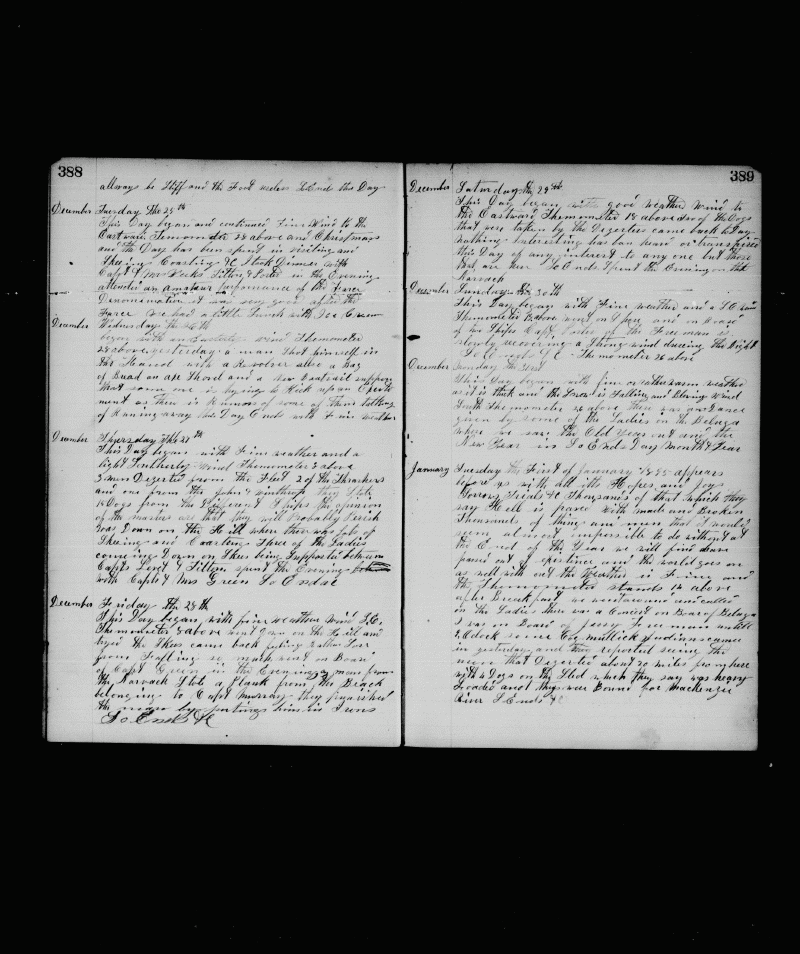 388
allways be Stiff and the Foot useless So Ends this Day
December Tuesday The 25th
This Day began and continued Fine Wind to the
Eastward Termometer 28 above and Christmas
and the Day has been spent in visiting and
Skeeing Coasting &C I took Dinner with
Capt & Mrs Weeks Sitting & Porter in the Evening
attended an amature performance of the Farce
Denomination it was very good after the
Farce we had a little Lunch with Joe Green
December Wednesday the 26th
began with an Easterly Wind Themometer
28 above yesterday a man shot himself in
the Hand with a Revolver allso a Bag
of Bread on
that some one is trying to Pick up an Outfit
ment as there is Rumors of some of them talking
of Running away this Day Ends with Fine weather
December Thursday The 27th
This Day began with Fine weather and a
light Southerly Wind Themometer 3 above
3 men Deserted from the Fleet 2 of the Thrashers
and one from the John & Winthrop they Stole
Dogs from the Different Ships the opinion
of the masters are that they will Probably Perish
was Down on the Hill when there was lots of
Skeeing and Coasting Three of the Ladies
comeing Down on Skees being Supported between
Capts & Tilton spent the Evening
with Capt & Mrs Green So Endse
December Friday the 28th
This Day began with fine weather Wind S.E.
Themometer 8 above went Down on the Hill and
tryed the Skees came back feeling rather Sore
from Falling so much went on Board
of Capt Green in the Evening a man from
the Narrach Stole a Plank from the Beach
belonging to Capt Murray they punished
the man by putting him in Irons
So Ends &C
389
December Saturday the 29th
This Day began with good weather Wind to
the Eastward Themometer 18 above two of the Dogs
that were taken by the Deserters came back to Day
nothing Interesting has been heard or transpired
this Day of any interest to any one but those
that are here So Ends Spent the Evening on the
Narrach
December Sunday the 30th
This Day began with Fine weather and a S.E. Wind
Themometer 13 above went on Shore and on Board
of two Ships Capt Porter of the Freeman is
slowly recovering a Strong wind dureing the Night
So Ends &C Themometer 26 above
December Monday the 31st
This Day began with fine or rather warm weather
as it is thick and the Snow is Falling and Blowing Wind
South Themometer 26 above there was a Dance
given by some of the Ladies on the Beluga
where we saw the Old Year out and the
New Year in So Ends Day Month & Year
January Tuesday the First of January 1895 appears
before us with all its Hopes and Joys
Sorrows Trials &C Thousands of that which they
say Hell is Paved with made and Broken
Thousands of things and men that I would
seem almost impossible to do without at
the End of the Year we will find have
passed out of existence and the world goes on
as well with out the Weather is Fine and
the Themometer stands 12 above
after Breakfast we went around and called
on the Ladies there was a Concert on Board of Beluga
I was on Board of Jessy Freeman untill
o Clock some Indians came
in yesterday and reported seeing the
men that Deserted about 30 miles from here
with 4 Dogs on the Sled which they say was heavy
Loaded and they were Bound for Mackenzie
River So Ends &C